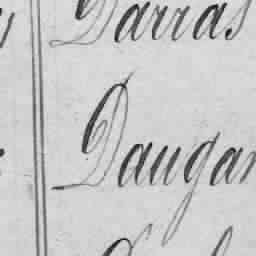 Darras
Daugan